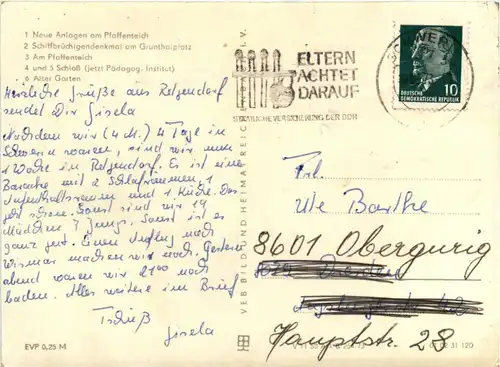 1 Neue Anlagen am Pfaffenteich
2 Schiffbrüchigendenkmal am Grunthalplatz
3 Am Pfaffenteich
4 und 5 Schloß (jetzt Pädagog. Institut)
6 Alter Garten
Herzliche Grüße aus Retgendorf
sendet Dir Gisela
Nachdem wir (4 M.) 4 Tage in
Schwerin waren, sind wir nun
1 Woche in Retgendorf. Es ist eine
Baracke mit 2 Schlafräumen, 1
Aufenthaltsraum und 1 Küche. Das
geht schon. Sonst sind wir 19
Mädchen 7 Jungs. Sonst ist es
ganz gut. Einen Ausflug nach
Wismar machen wir noch. Gestern
abend waren wir 21 00 noch
baden. Alles weitere im Brief
Tschüß
Gisela
EVP 0,25 M
VEB BILD UND HEIMAT REICHENBACH I. V.
ELTERN
ACHTET
DARAUF
STAATLICHE VERSICHERUNG DER DDR
SCHWERIN
10
DEUTSCHE
DEMOKRATISCHE REPUBLIK
Frl.
Ute Barthe
8601 Obergurig
Hauptstr. 28
01 02 31 120